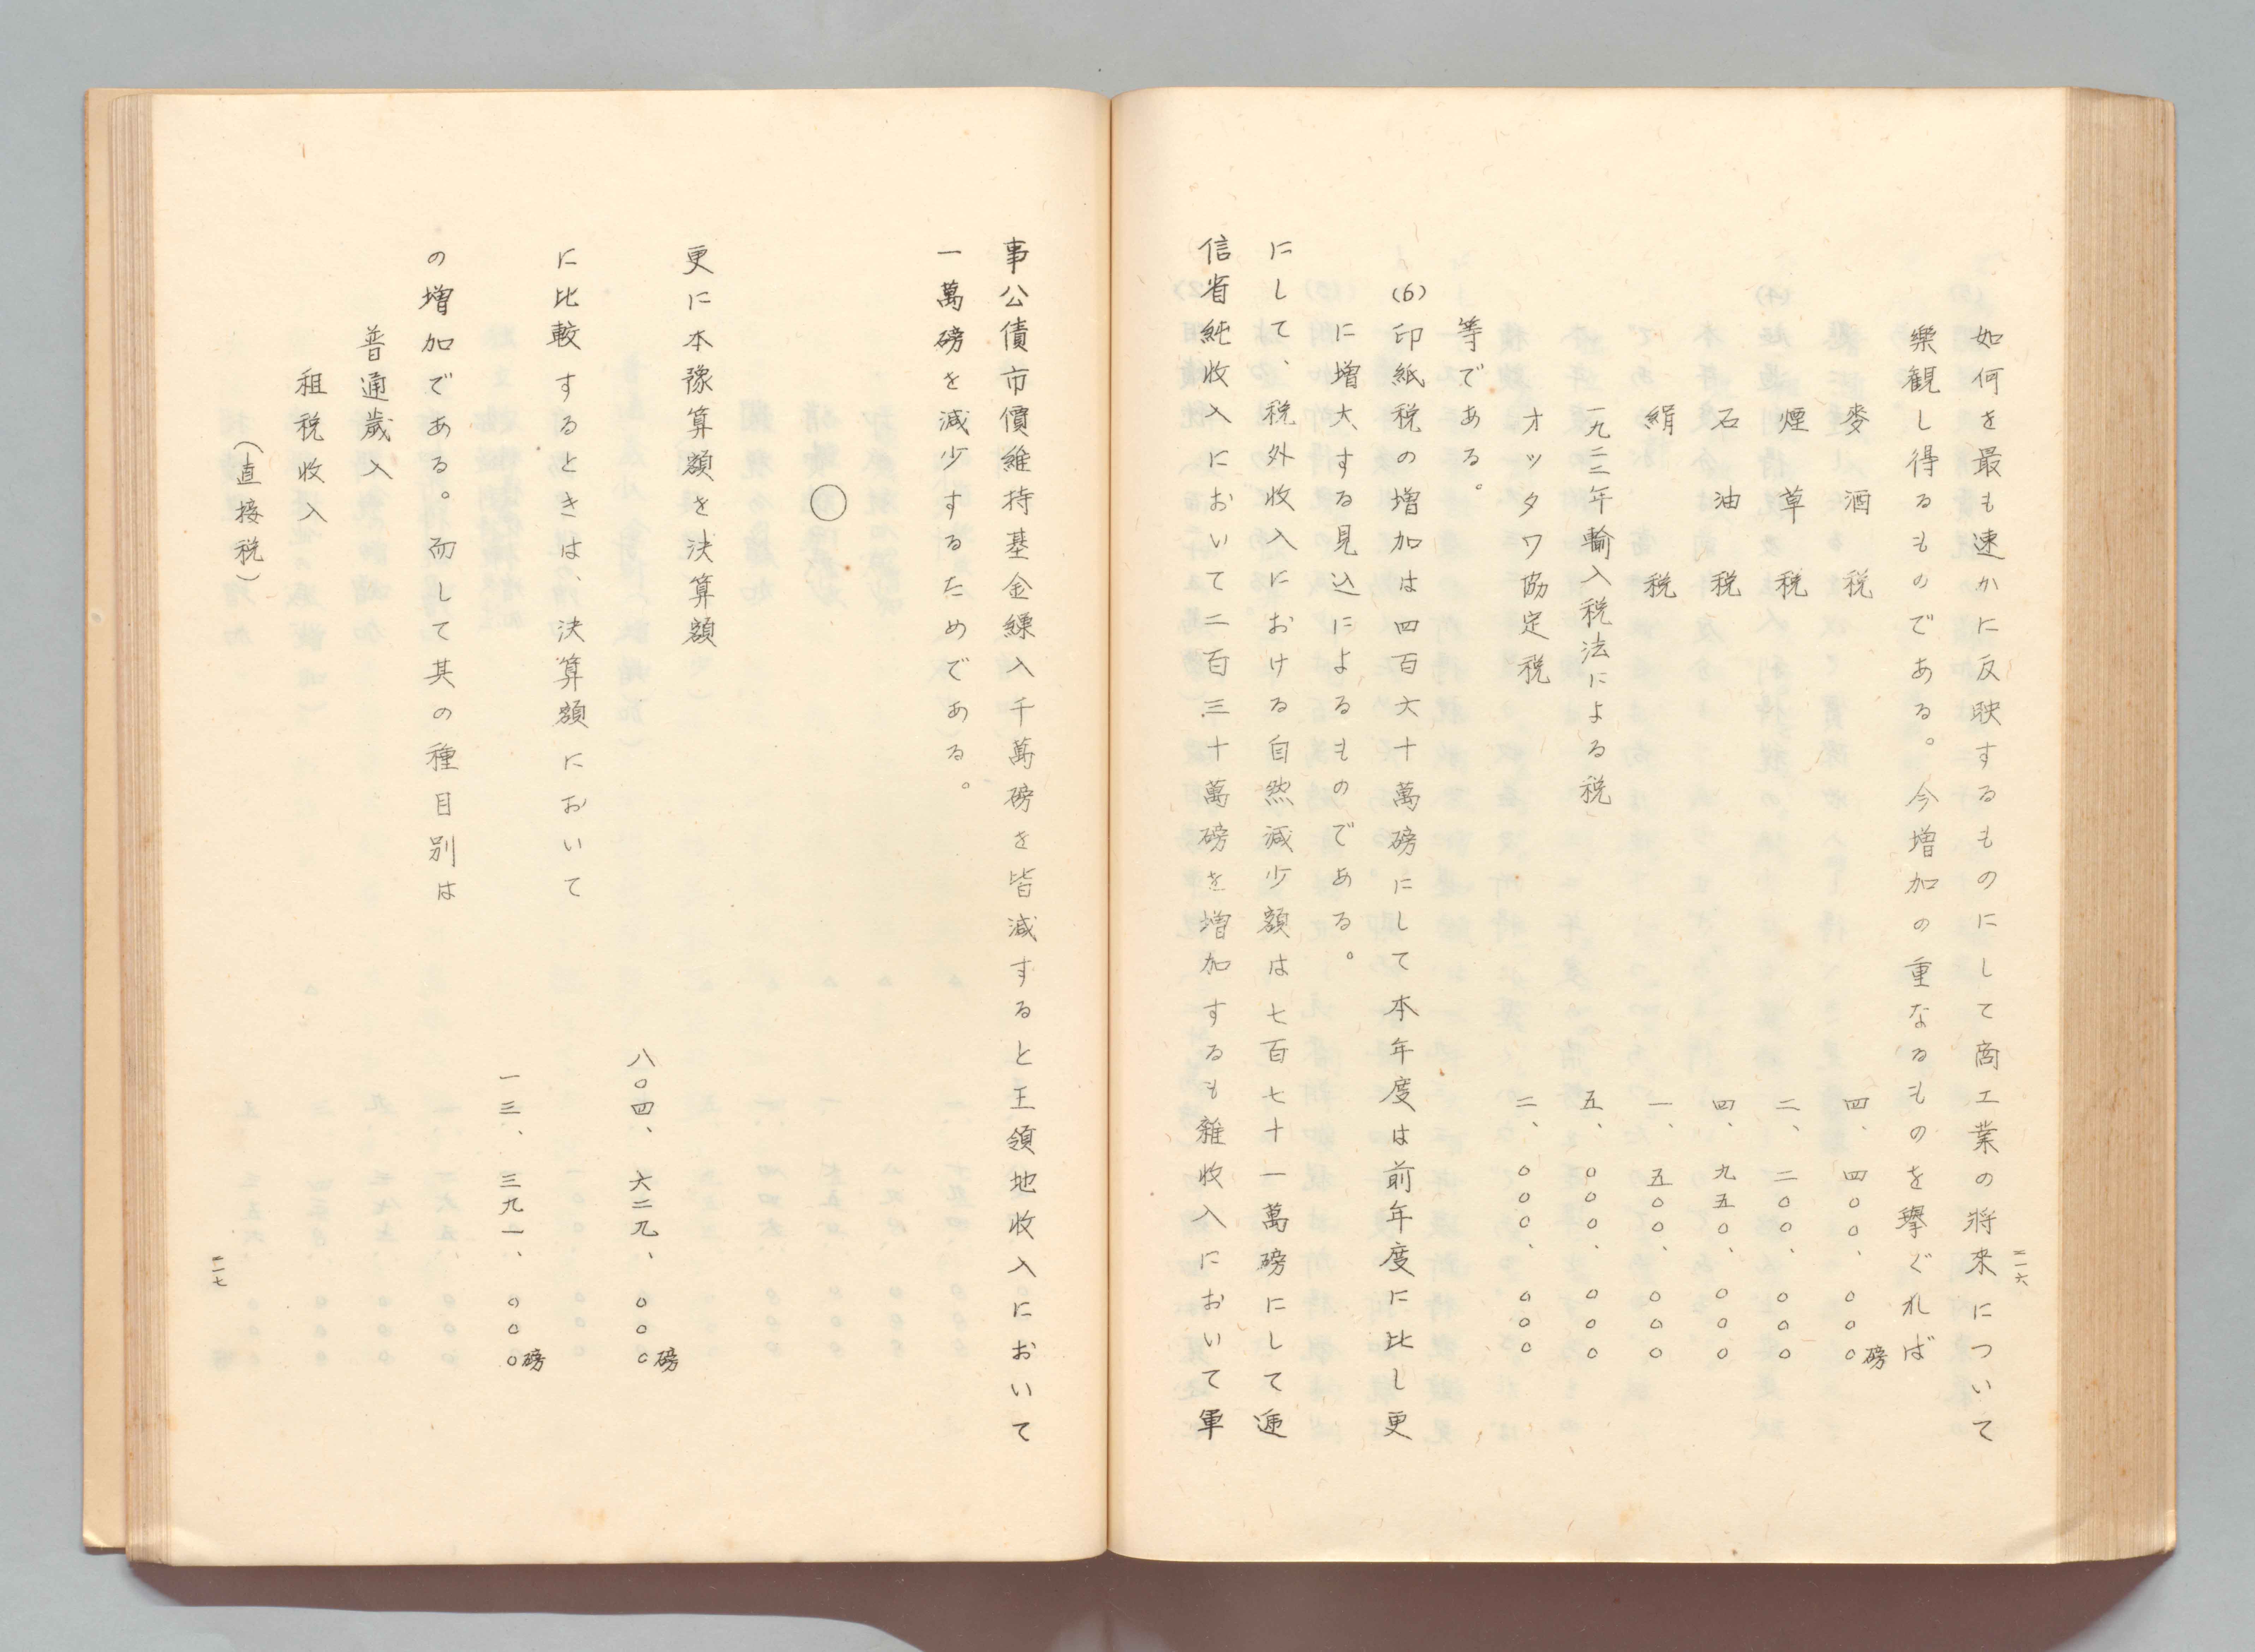 如何を最も速かに反映するものにして商工業の將来について
樂観し得るものである。今増加の重なるものを擧ぐれば
麥酒税 四、四〇〇、〇〇〇磅
煙草税 二、二〇〇、〇〇〇
石油税 四、九五〇、〇〇〇
絹税 一、五〇〇、〇〇〇
一九三二年輸入税法による税 五、〇〇〇、〇〇〇
オッタワ協定税 二、〇〇〇、〇〇〇
等である。
(6)印紙税の増加は四百六十萬磅にして本年度は前年度に比し更
に増大する見込によるものである。
にして、税外收入における自然減少額は七百七十一萬磅にして逓
信省純收入において二百三十萬磅を増加するも雑收入において軍
二一六
事公債市價維持基金繰入千萬磅を皆減すると王領地收入において
一萬磅を減少するためである。
○
更に本豫算額を決算額
八〇四、六二九、〇〇〇磅
に比較するときは、決算額において
一三、三九一、〇〇〇磅
の増加である。而して其の種目別は
普通歳入
租税收入
(直接税)
二一七